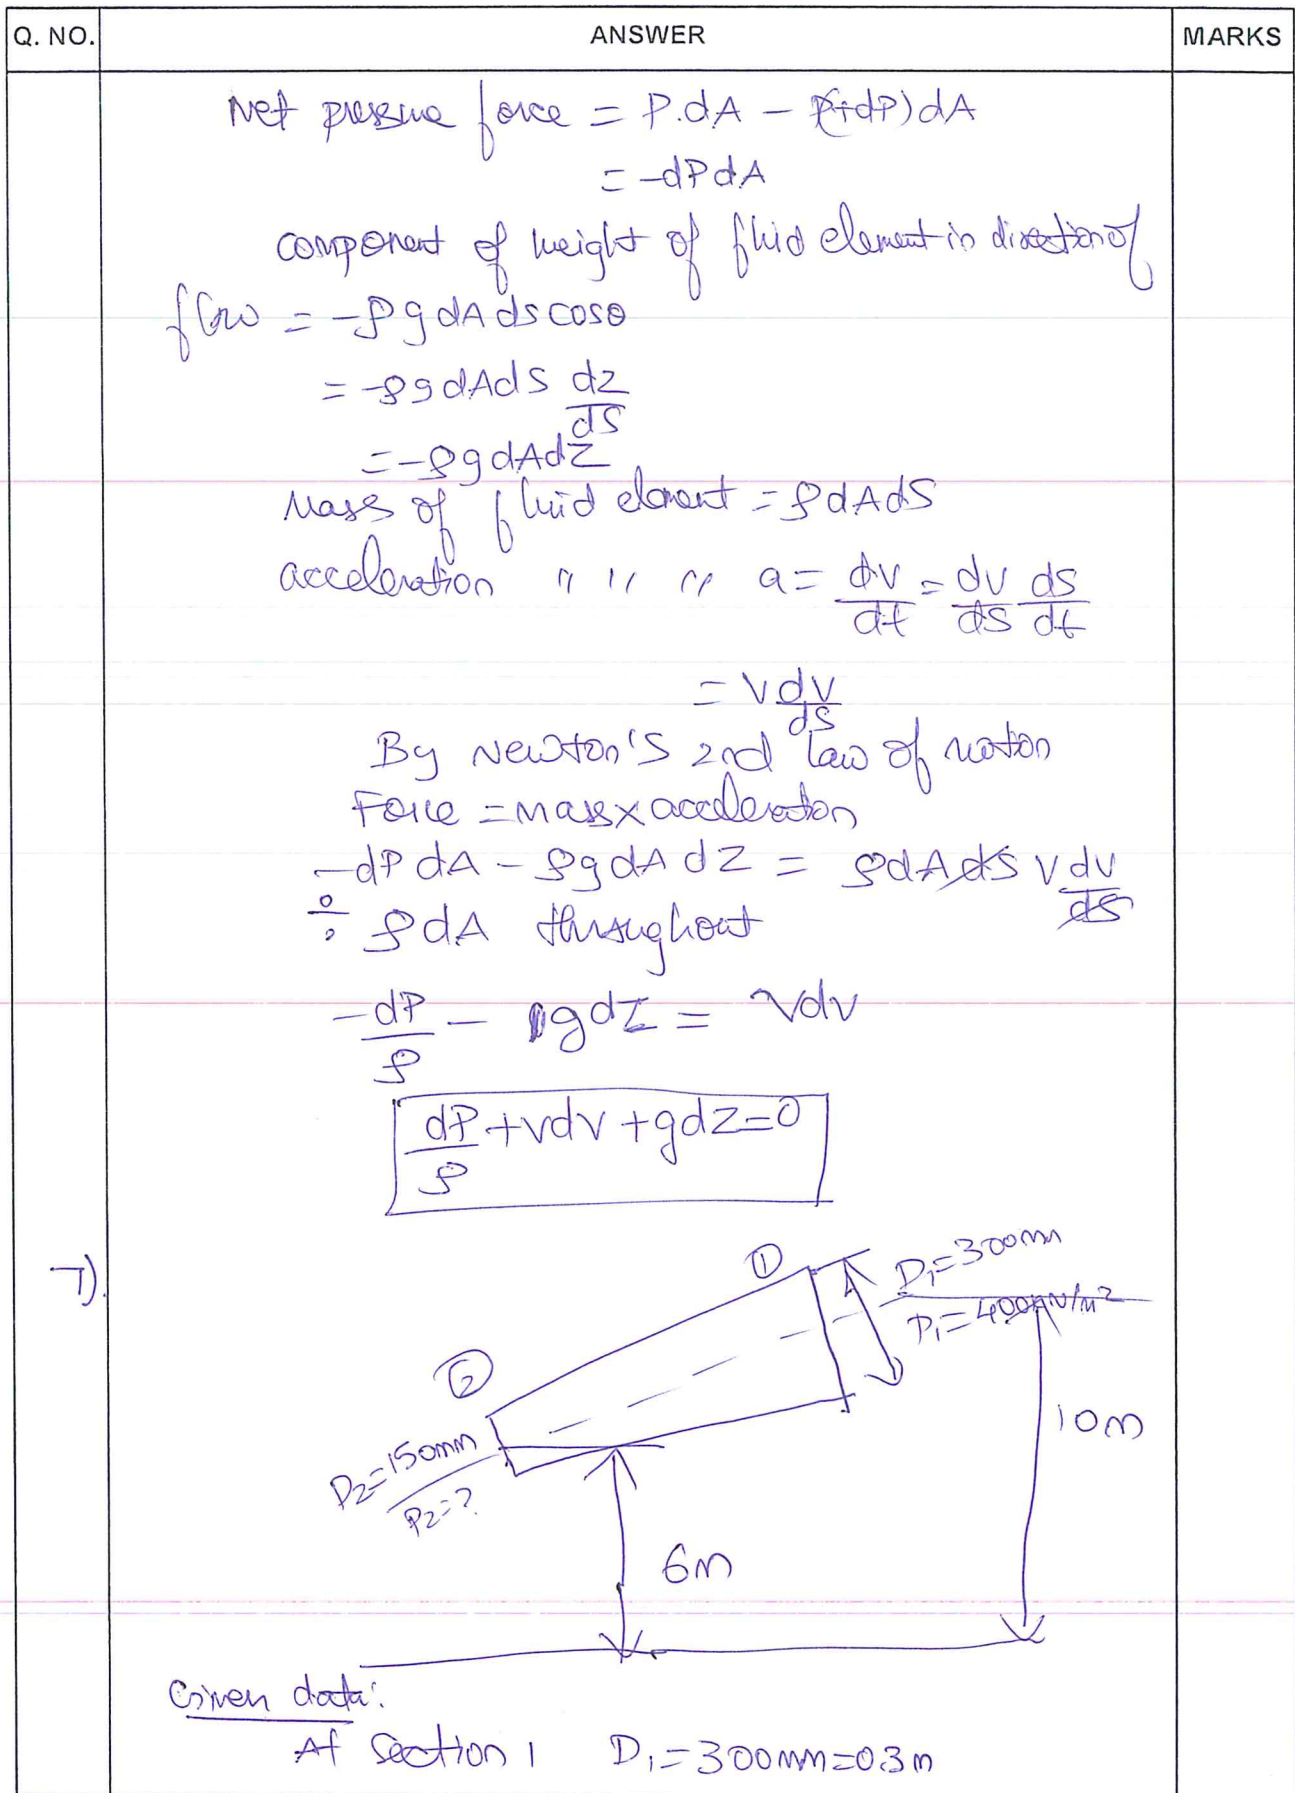 Q. NO. ANSWER MARKS
Net pressure force = P.dA - (P+dP)dA
= -dPdA
component of weight of fluid element in direction of
flow = -ρgdAdscosθ
= -ρgdAdS dz/dS
= -ρgdAdZ
Mass of fluid element = ρdAdS
acceleration " " " a = dv/dt = dv/ds ds/dt
= V dv/ds
By Newton's 2nd law of motion
Force = mass x acceleration
-dPdA - ρgdAdZ = ρdAdS V dv/ds
÷ ρdA throughout
-dP/ρ - gdZ = Vdv
dP/ρ + vdv + gdz = 0
7).
① D₁=300mm
P₁=400kN/m²
②
10m
D₂=150mm
P₂=?
6m
Given data:
At Section 1 D₁=300mm=0.3m